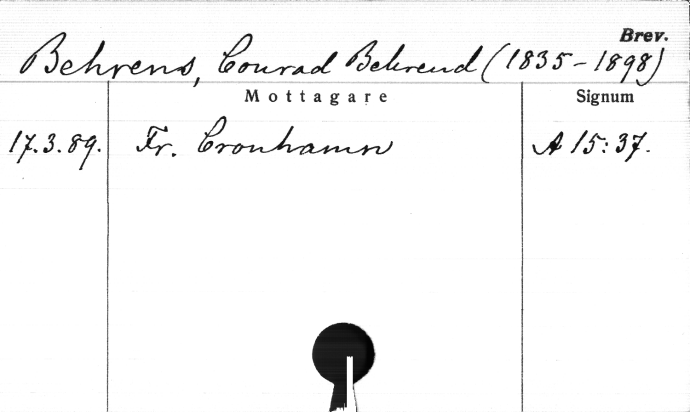 Brev.
Behrens, Conrad Behrend (1835-1898)
Mottagare Signum
17.3.89. Fr. Cronhamn A 15:37.